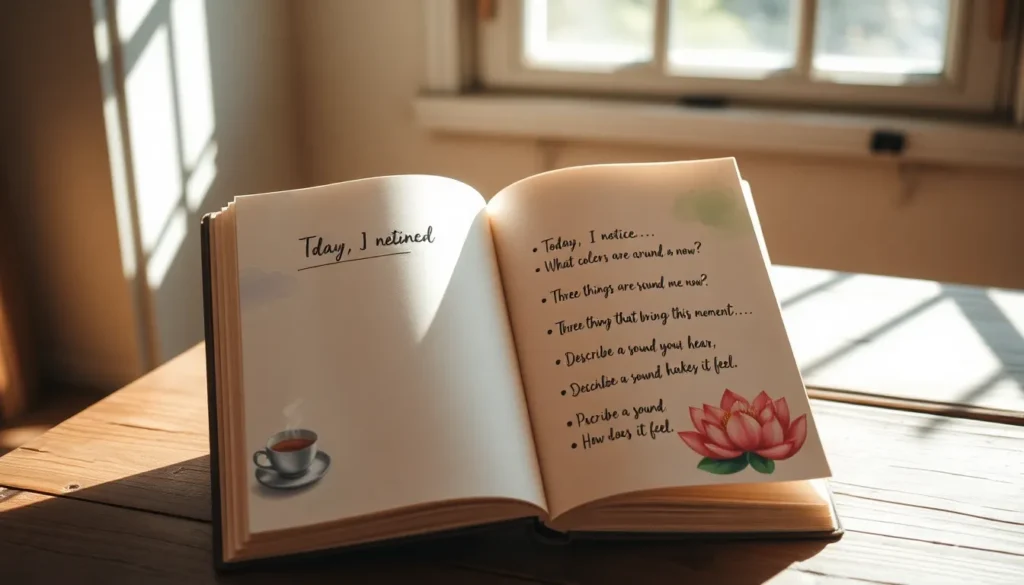 Tday, I netined
• Today, I notice....
• What colers are arund a now?
• Three things are sound me now?
• Three thwg that bring this moment....
• Describe a sound your hear,
• Decchloe a sound hukes it feel.
• Pscribe a sound
• How does it feel.